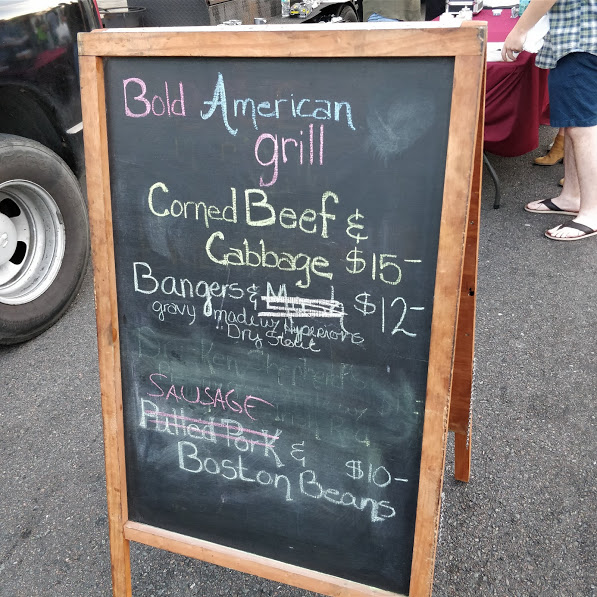 Bold American
grill
Corned Beef &
Cabbage $15-
Bangers & Mash $12-
gravy made w/ Hyperions
"Dry Stout"
SAUSAGE
Pulled Pork &
Boston Beans $10-